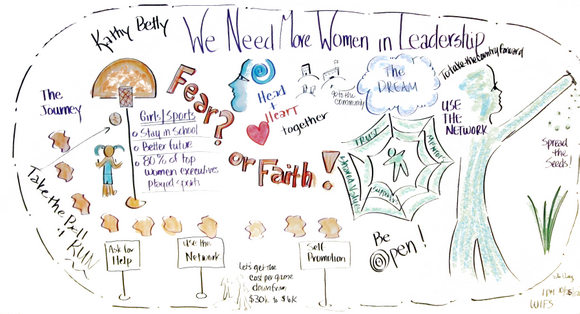 Kathy Betty
We Need More Women in Leadership
The
Journey
Fear?
or Faith!
Head
+
HEART
together
The
DREAM
To take the Country Forward
USE
THE
NETWORK
Girls/Sports
Stay in School
Better future
80% of top
women executives
played sports
TRUST
Support
Spread
the
Seeds!
Take the Ball
+ RUN
Ask for
Help
Use the
Network
Let's get the
cost per game
down from
$30k to $6k
Self
Promotion
Be
Open!